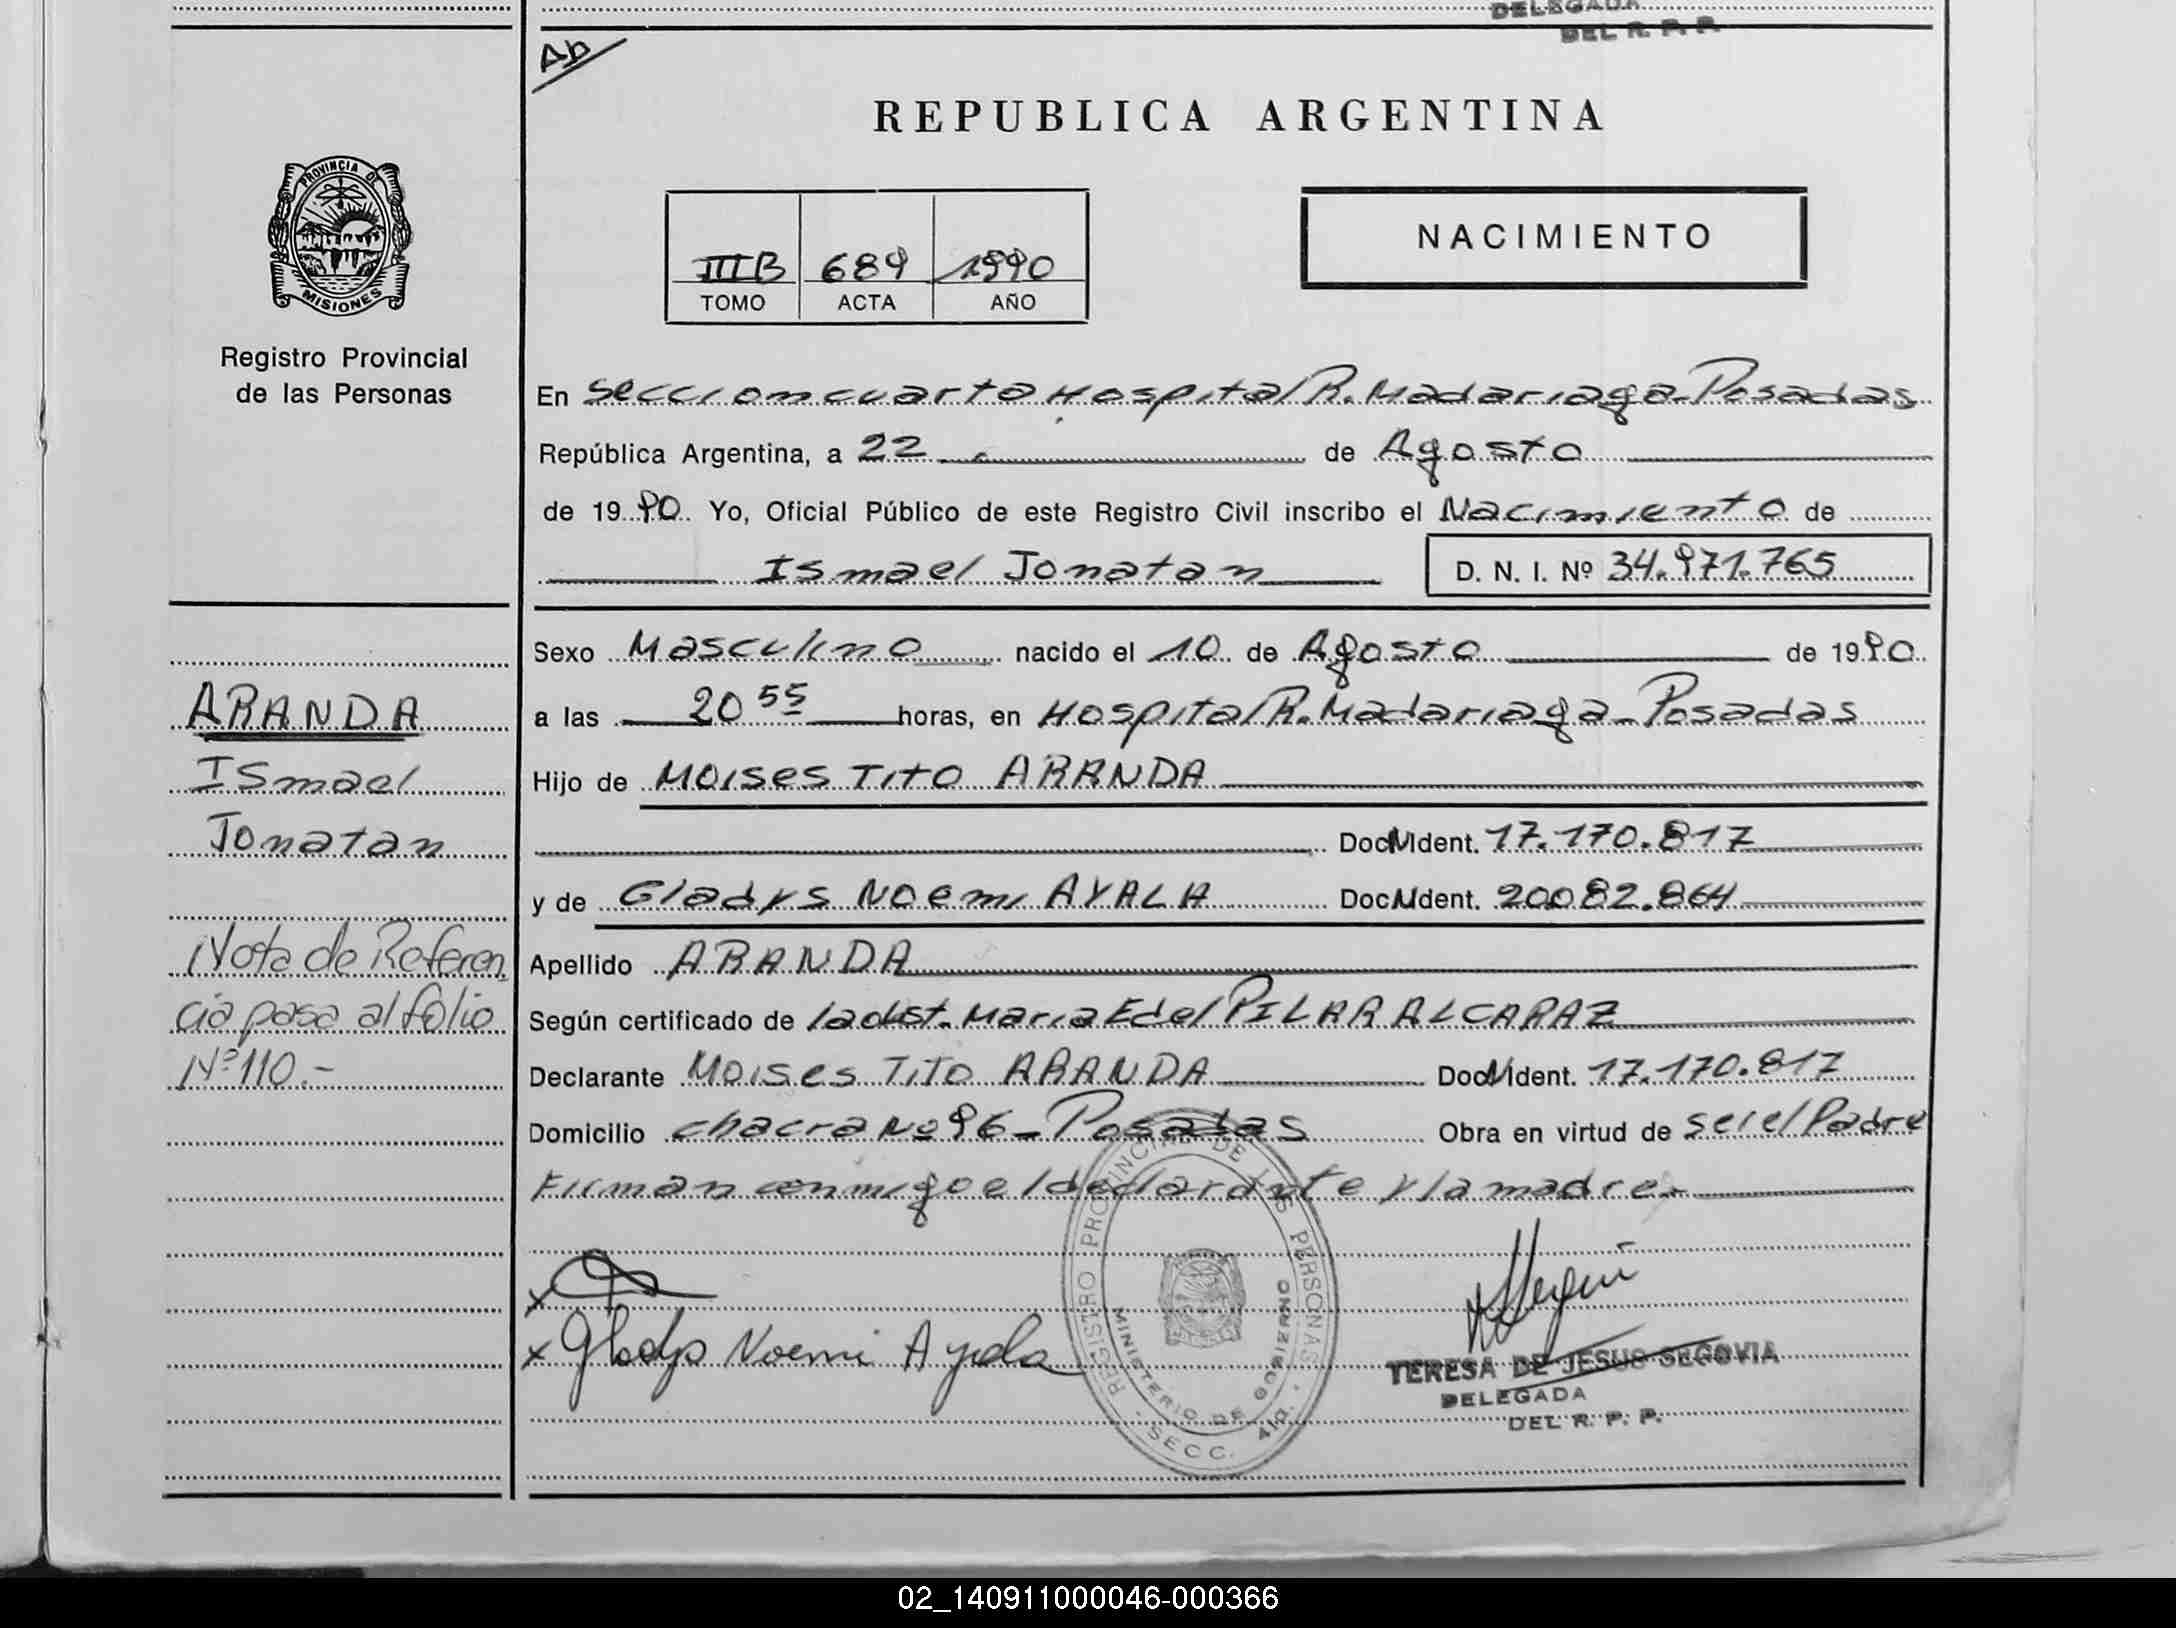 DELEGADA
DEL R. P. P.
Ab
REPUBLICA ARGENTINA
PROVINCIA DE
MISIONES
Registro Provincial
de las Personas
IIIB 689 1990
TOMO ACTA AÑO
NACIMIENTO
En Seccion cuarta Hospital R. Madariaga - Posadas
República Argentina, a 22 de Agosto
de 1990 Yo, Oficial Público de este Registro Civil inscribo el Nacimiento de
Ismael Jonatan D. N. I. Nº 34.971.765
ARANDA
Ismael
Jonatan
Nota de Referen
cia pasa al folio
Nº 110.-
Sexo Masculino nacido el 10 de Agosto de 1990
a las 20 55 horas, en Hospital R. Madariaga - Posadas
Hijo de MOISES TITO ARANDA
Doc. Ident. 17.170.817
y de Gladys NOEMI AYALA Doc. Ident. 20082.864
Apellido ARANDA
Según certificado de la obst. Maria E del PILAR ALCARAZ
Declarante MOISES TITO ARANDA Doc. Ident. 17.170.817
Domicilio chacra Nº 96 - Posadas Obra en virtud de ser el Padre
Firman conmigo el declarante y la madre.
x
x Gladys Noemi Ayala
REGISTRO PROVINCIAL DE LAS PERSONAS
MINISTERIO DE GOBIERNO
SECC. 4ta.
TERESA DE JESUS SEGOVIA
DELEGADA
DEL R. P. P.
02_140911000046-000366